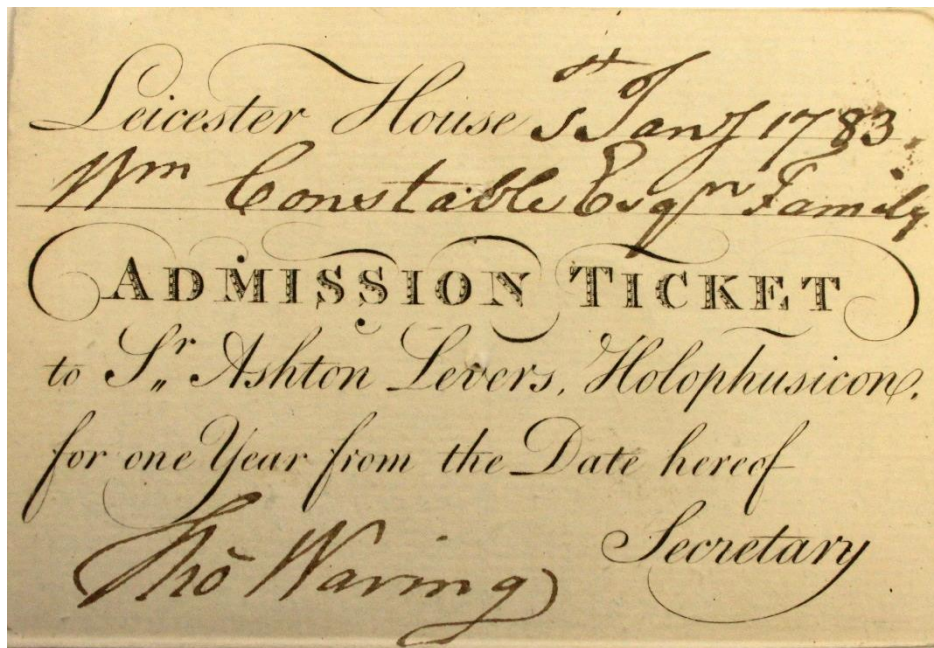 Leicester House 5th Jany 1783.
Wm Constable Esqr Family
ADMISSION TICKET
to Sr Ashton Levers, Holophusicon.
for one Year from the Date hereof
Secretary
Tho Waring